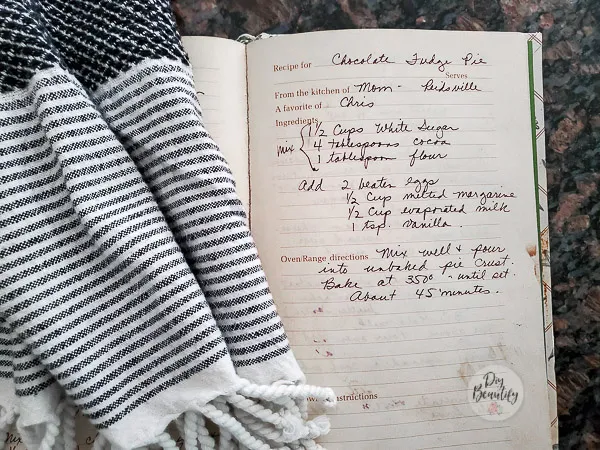 Recipe for Chocolate Fudge Pie
Serves
From the kitchen of Mom - Reidsville
A favorite of Chris
Ingredients
Mix { 1 1/2 Cups White Sugar
4 tablespoons cocoa
1 tablespoon flour
Add 2 beaten eggs
1/2 Cup melted margarine
1/2 Cup evaporated milk
1 tsp. vanilla.
Oven/Range directions Mix well & pour
into unbaked pie crust.
Bake at 350° - until set.
About 45 minutes.
instructions
Diy
Beautify
Mix